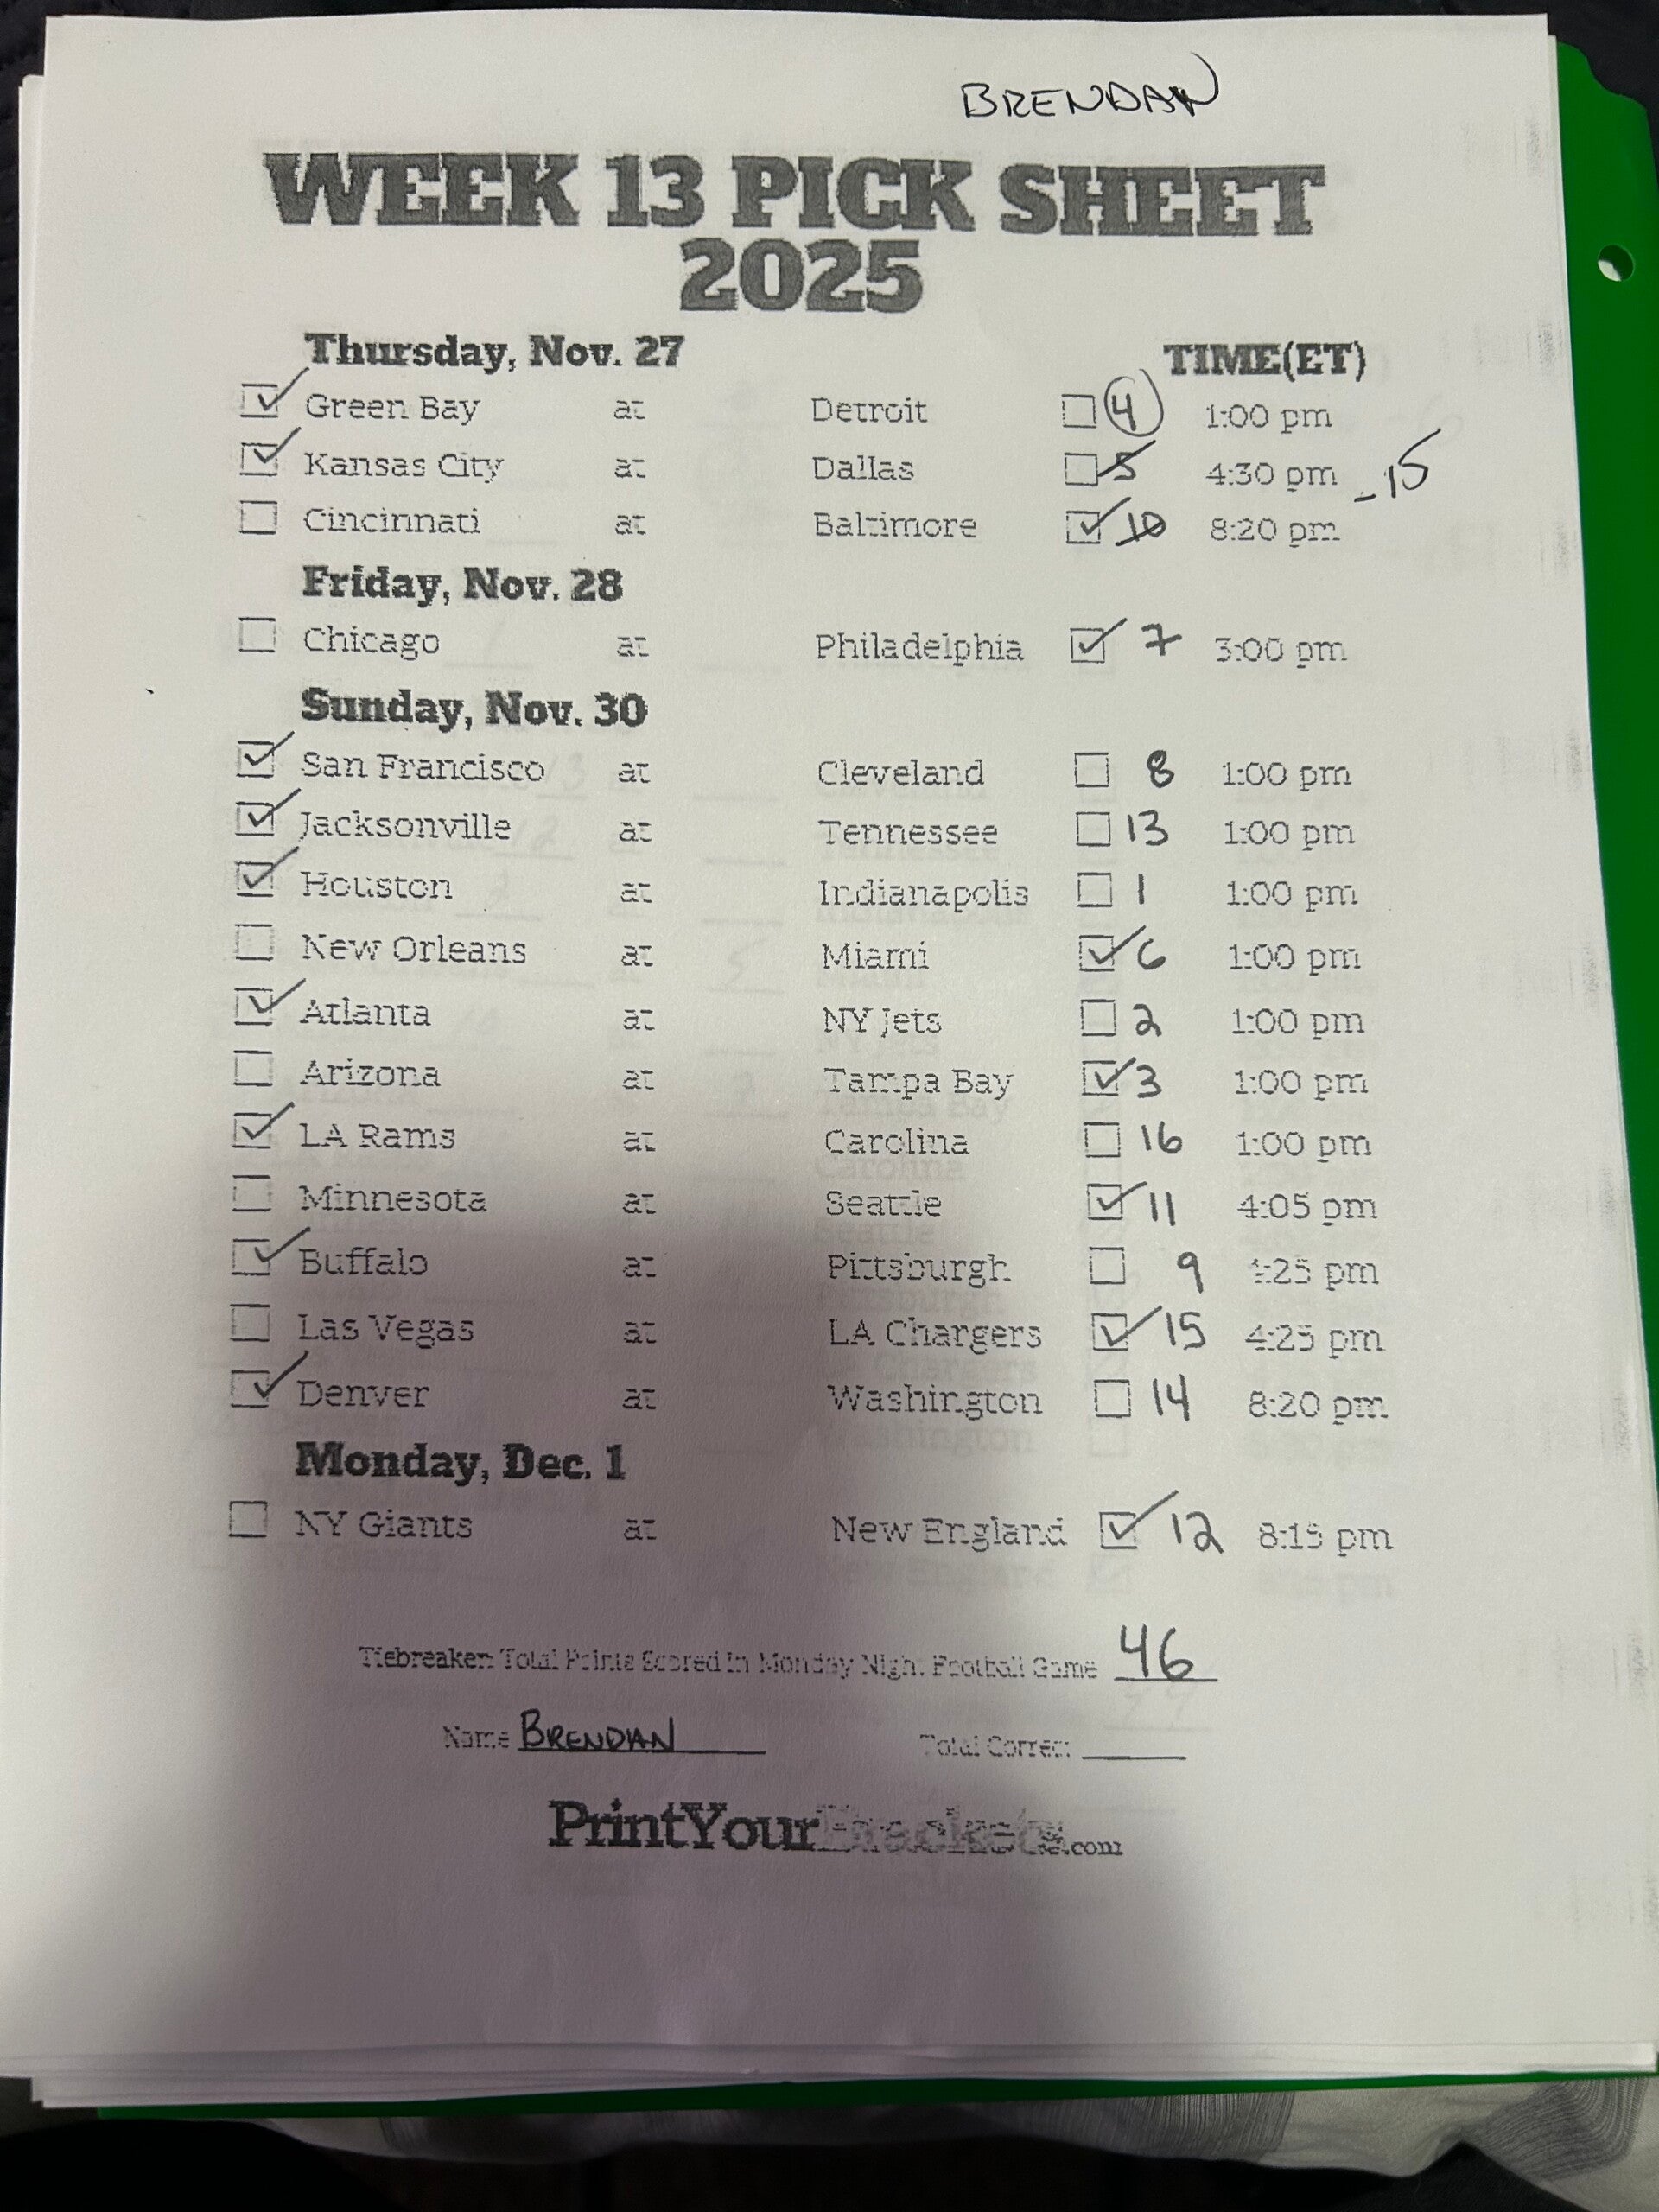 BRENDAN
WEEK 13 PICK SHEET
2025
Thursday, Nov. 27 TIME(ET)
Green Bay at Detroit 4 1:00 pm
Kansas City at Dallas 5 4:30 pm -15
Cincinnati at Baltimore 10 8:20 pm
Friday, Nov. 28
Chicago at Philadelphia 7 3:00 pm
Sunday, Nov. 30
San Francisco at Cleveland 8 1:00 pm
Jacksonville at Tennessee 13 1:00 pm
Houston at Indianapolis 1 1:00 pm
New Orleans at Miami 6 1:00 pm
Atlanta at NY Jets 2 1:00 pm
Arizona at Tampa Bay 3 1:00 pm
LA Rams at Carolina 16 1:00 pm
Minnesota at Seattle 11 4:05 pm
Buffalo at Pittsburgh 9 4:25 pm
Las Vegas at LA Chargers 15 4:25 pm
Denver at Washington 14 8:20 pm
Monday, Dec. 1
NY Giants at New England 12 8:15 pm
Tiebreaker: Total Points Scored In Monday Night Football Game 46
Name BRENDAN Total Correct
PrintYourBrackets.com